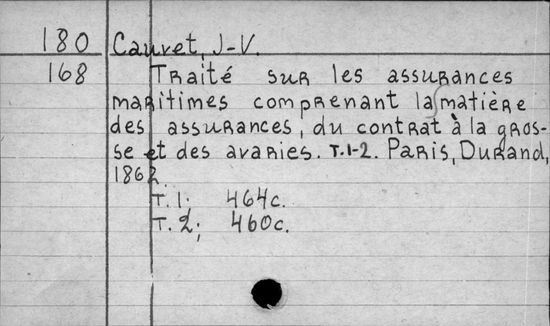 180 Cauvet, J-V.
168 Traité sur les assurances
maritimes comprenant la matière
des assurances, du contrat à la gros-
se et des avaries. T.1-2. Paris, Durand,
1862.
T. 1; 464c.
T. 2; 460c.